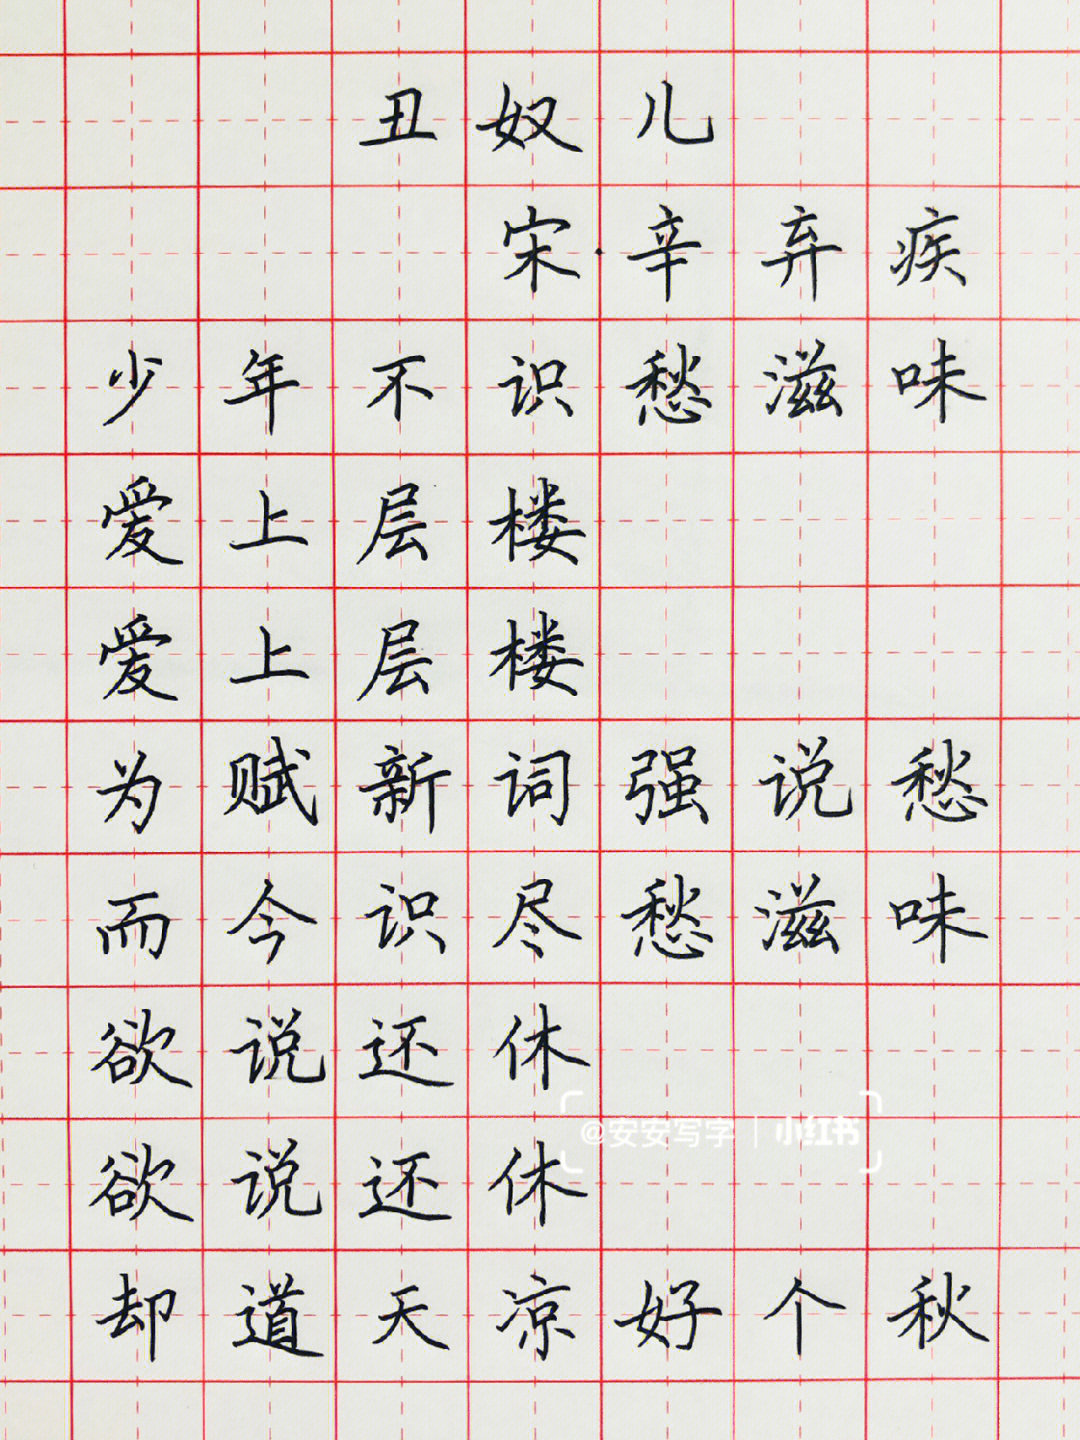 丑奴儿
宋·辛弃疾
少年不识愁滋味
爱上层楼
爱上层楼
为赋新词强说愁
而今识尽愁滋味
欲说还休
@安安写字 | 小红书
欲说还休
却道天凉好个秋